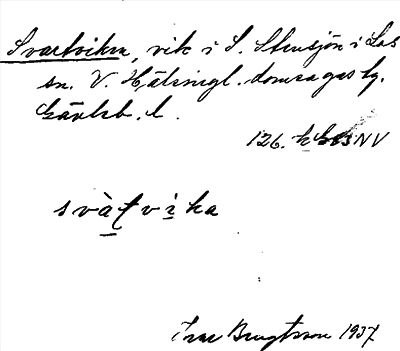 Svartviken, vik i S. Stensjön i Los
sn. V. Hälsingl. domsagas tg.
Gävleb. l.
126. Los NV
svàtvìka
Ivar Bengtsson 1937